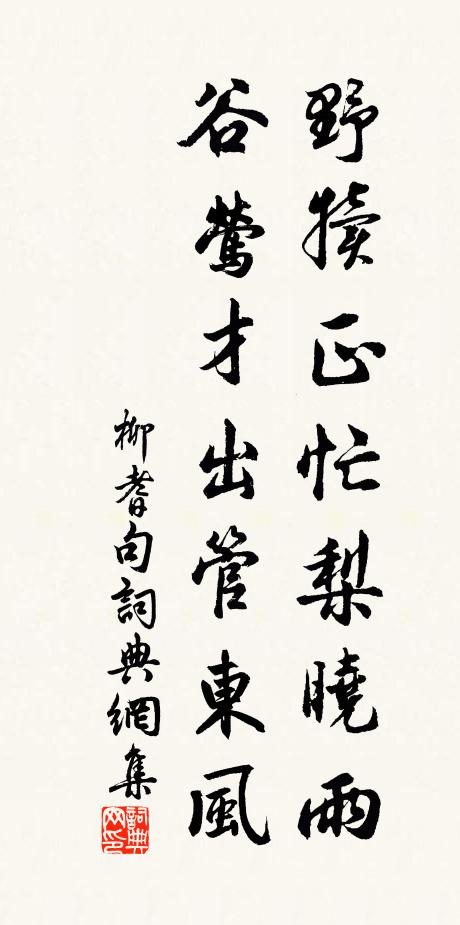 野犢正忙梨曉雨
谷鶯才出管東風
柳耆句詞典網集
詞典
网印